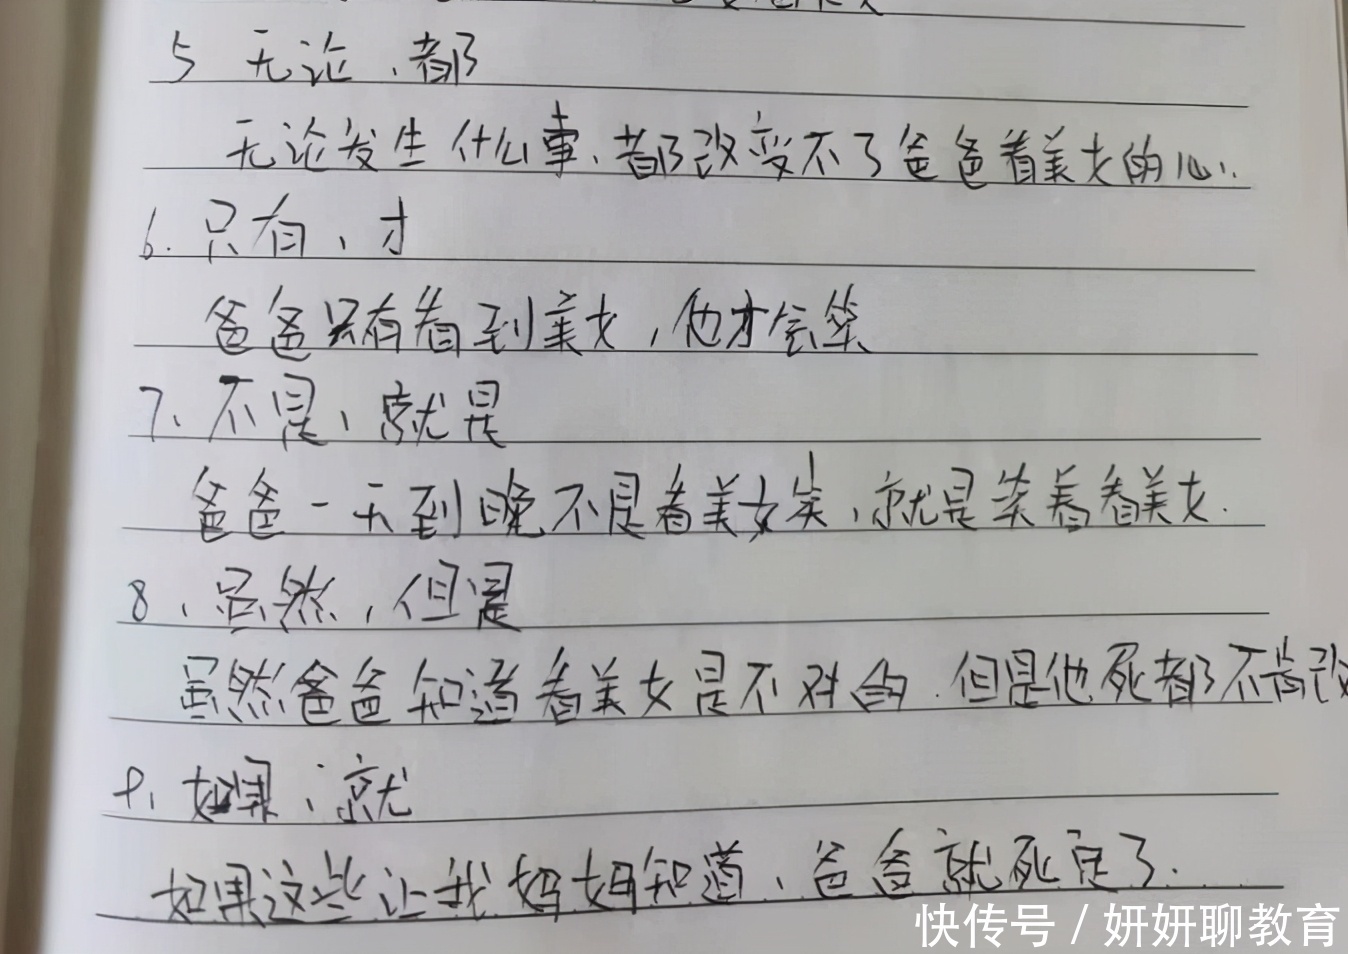 5 无论、都
无论发生什么事、都改变不了爸爸看美女的心.
6.只有、才
爸爸只有看到美女,他才会笑
7、不是、就是
爸爸一天到晚不是看美女笑,就是笑着看美女.
8、虽然,但是
虽然爸爸知道看美女是不对的.但是他死都不肯改
9、如果、就
如果这些让我妈妈知道、爸爸就死定了.
快传号/妍妍聊教育